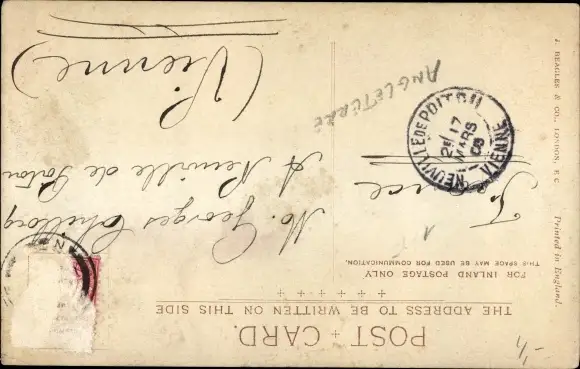 POST + CARD.
THE ADDRESS TO BE WRITTEN ON THIS SIDE
FOR INLAND POSTAGE ONLY
THIS SPACE MAY BE USED FOR COMMUNICATION.
M. Georges
A Neuville de Poitou
(Vienne)
France
ANGLETERRE
NEUVILLE DE POITOU
2E / 17
MARS
VIENNE
J. BEAGLES & CO., LONDON, E.C.
Printed in England.